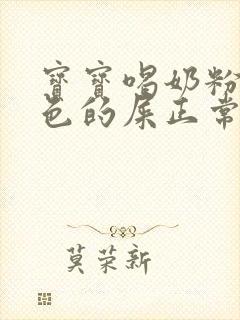 寳寳喝奶粉
色的屎正常
莫荣新